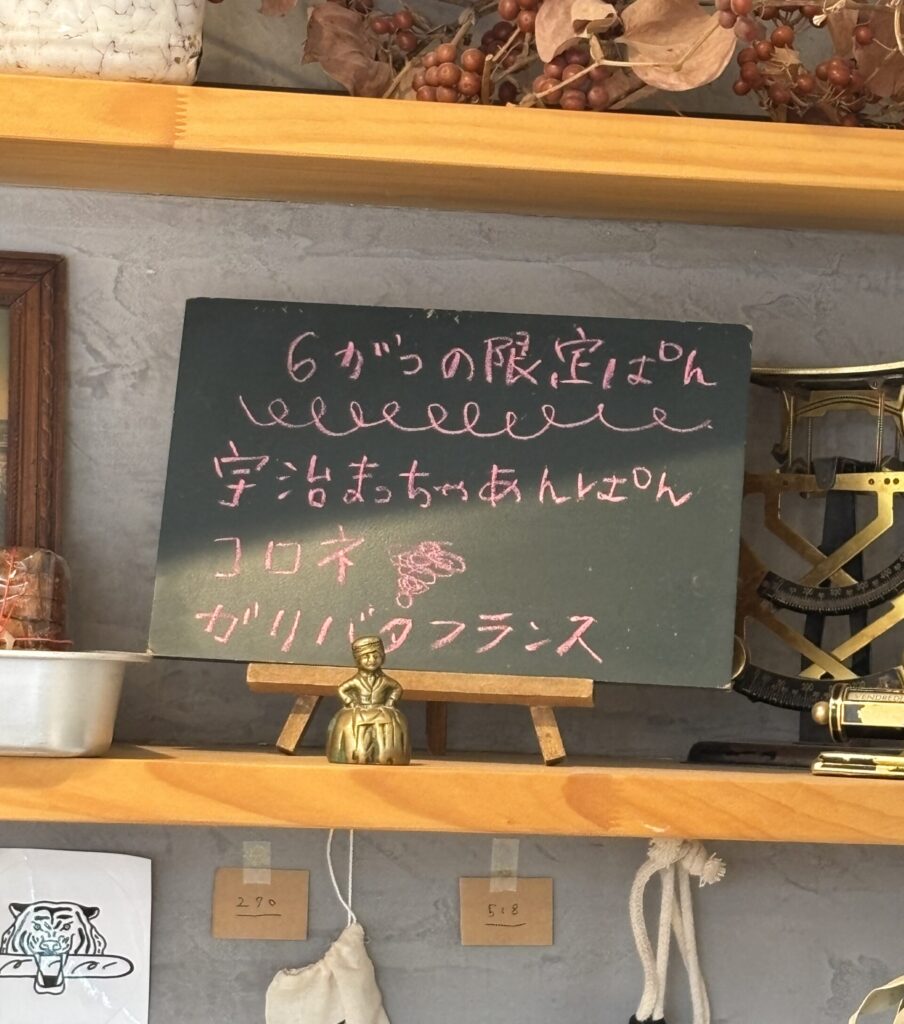 6がつの限定ぱん
宇治まっちゃあんぱん
コロネ
ガリバタフランス
VENDREDI
270
518